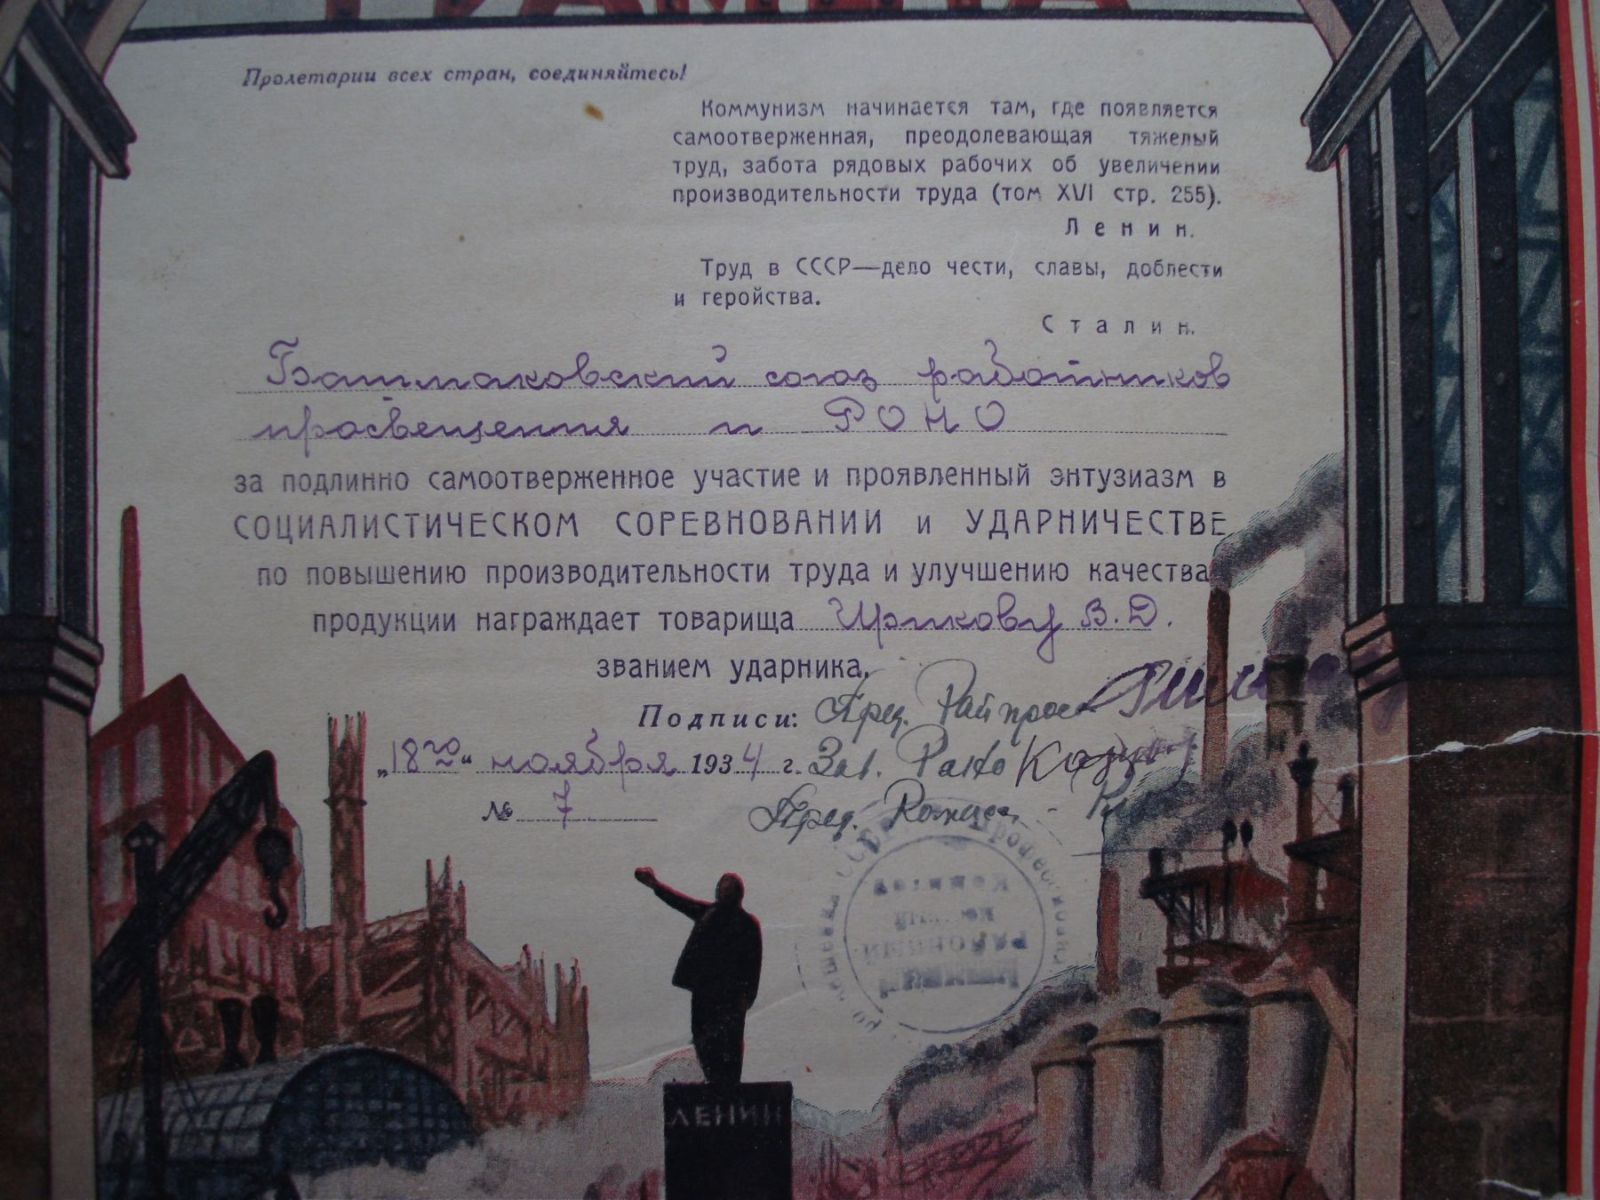 ГРАМОТА
Пролетарии всех стран, соединяйтесь!
Коммунизм начинается там, где появляется
самоотверженная, преодолевающая тяжелый
труд, забота рядовых рабочих об увеличении
производительности труда (том XVI стр. 255).
Ленин.
Труд в СССР—дело чести, славы, доблести
и геройства.
Сталин.
Башмаковский союз работников
просвещения и РОНО
за подлинно самоотверженное участие и проявленный энтузиазм в
СОЦИАЛИСТИЧЕСКОМ СОРЕВНОВАНИИ и УДАРНИЧЕСТВЕ
по повышению производительности труда и улучшению качества
продукции награждает товарища В. Д.
званием ударника.
Подписи: Пред. Райпрос
„18го" ноября 1934 г. Зав. РайО
№ 7 Пред.
РАЙОННЫЙ
ЛЕНИН